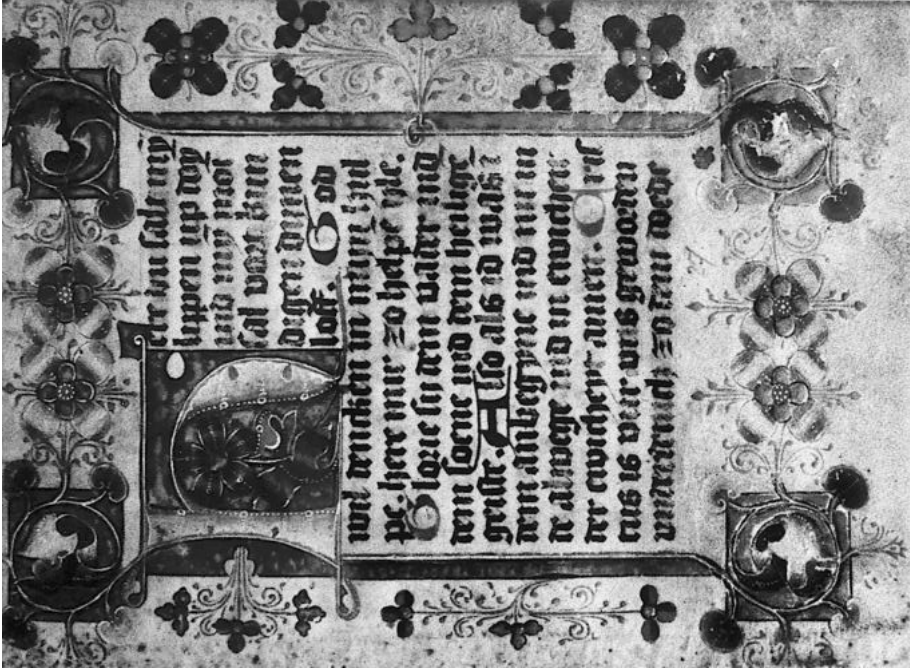 Here du salt my
lippen up doy
und my mot
sal vort kun
digen dinen
loff. God
wil dencken in myn hul
pe. here mir zo helpe yle.
Glorie sy dem vader und
dem soene und dem heilige
geiste. Also als id was in
dem anbegyne und nu un
de alwege und in ewichen
der ewicheyt amen. Cris
tus is vur uns geworden
underdanich zo dem dode